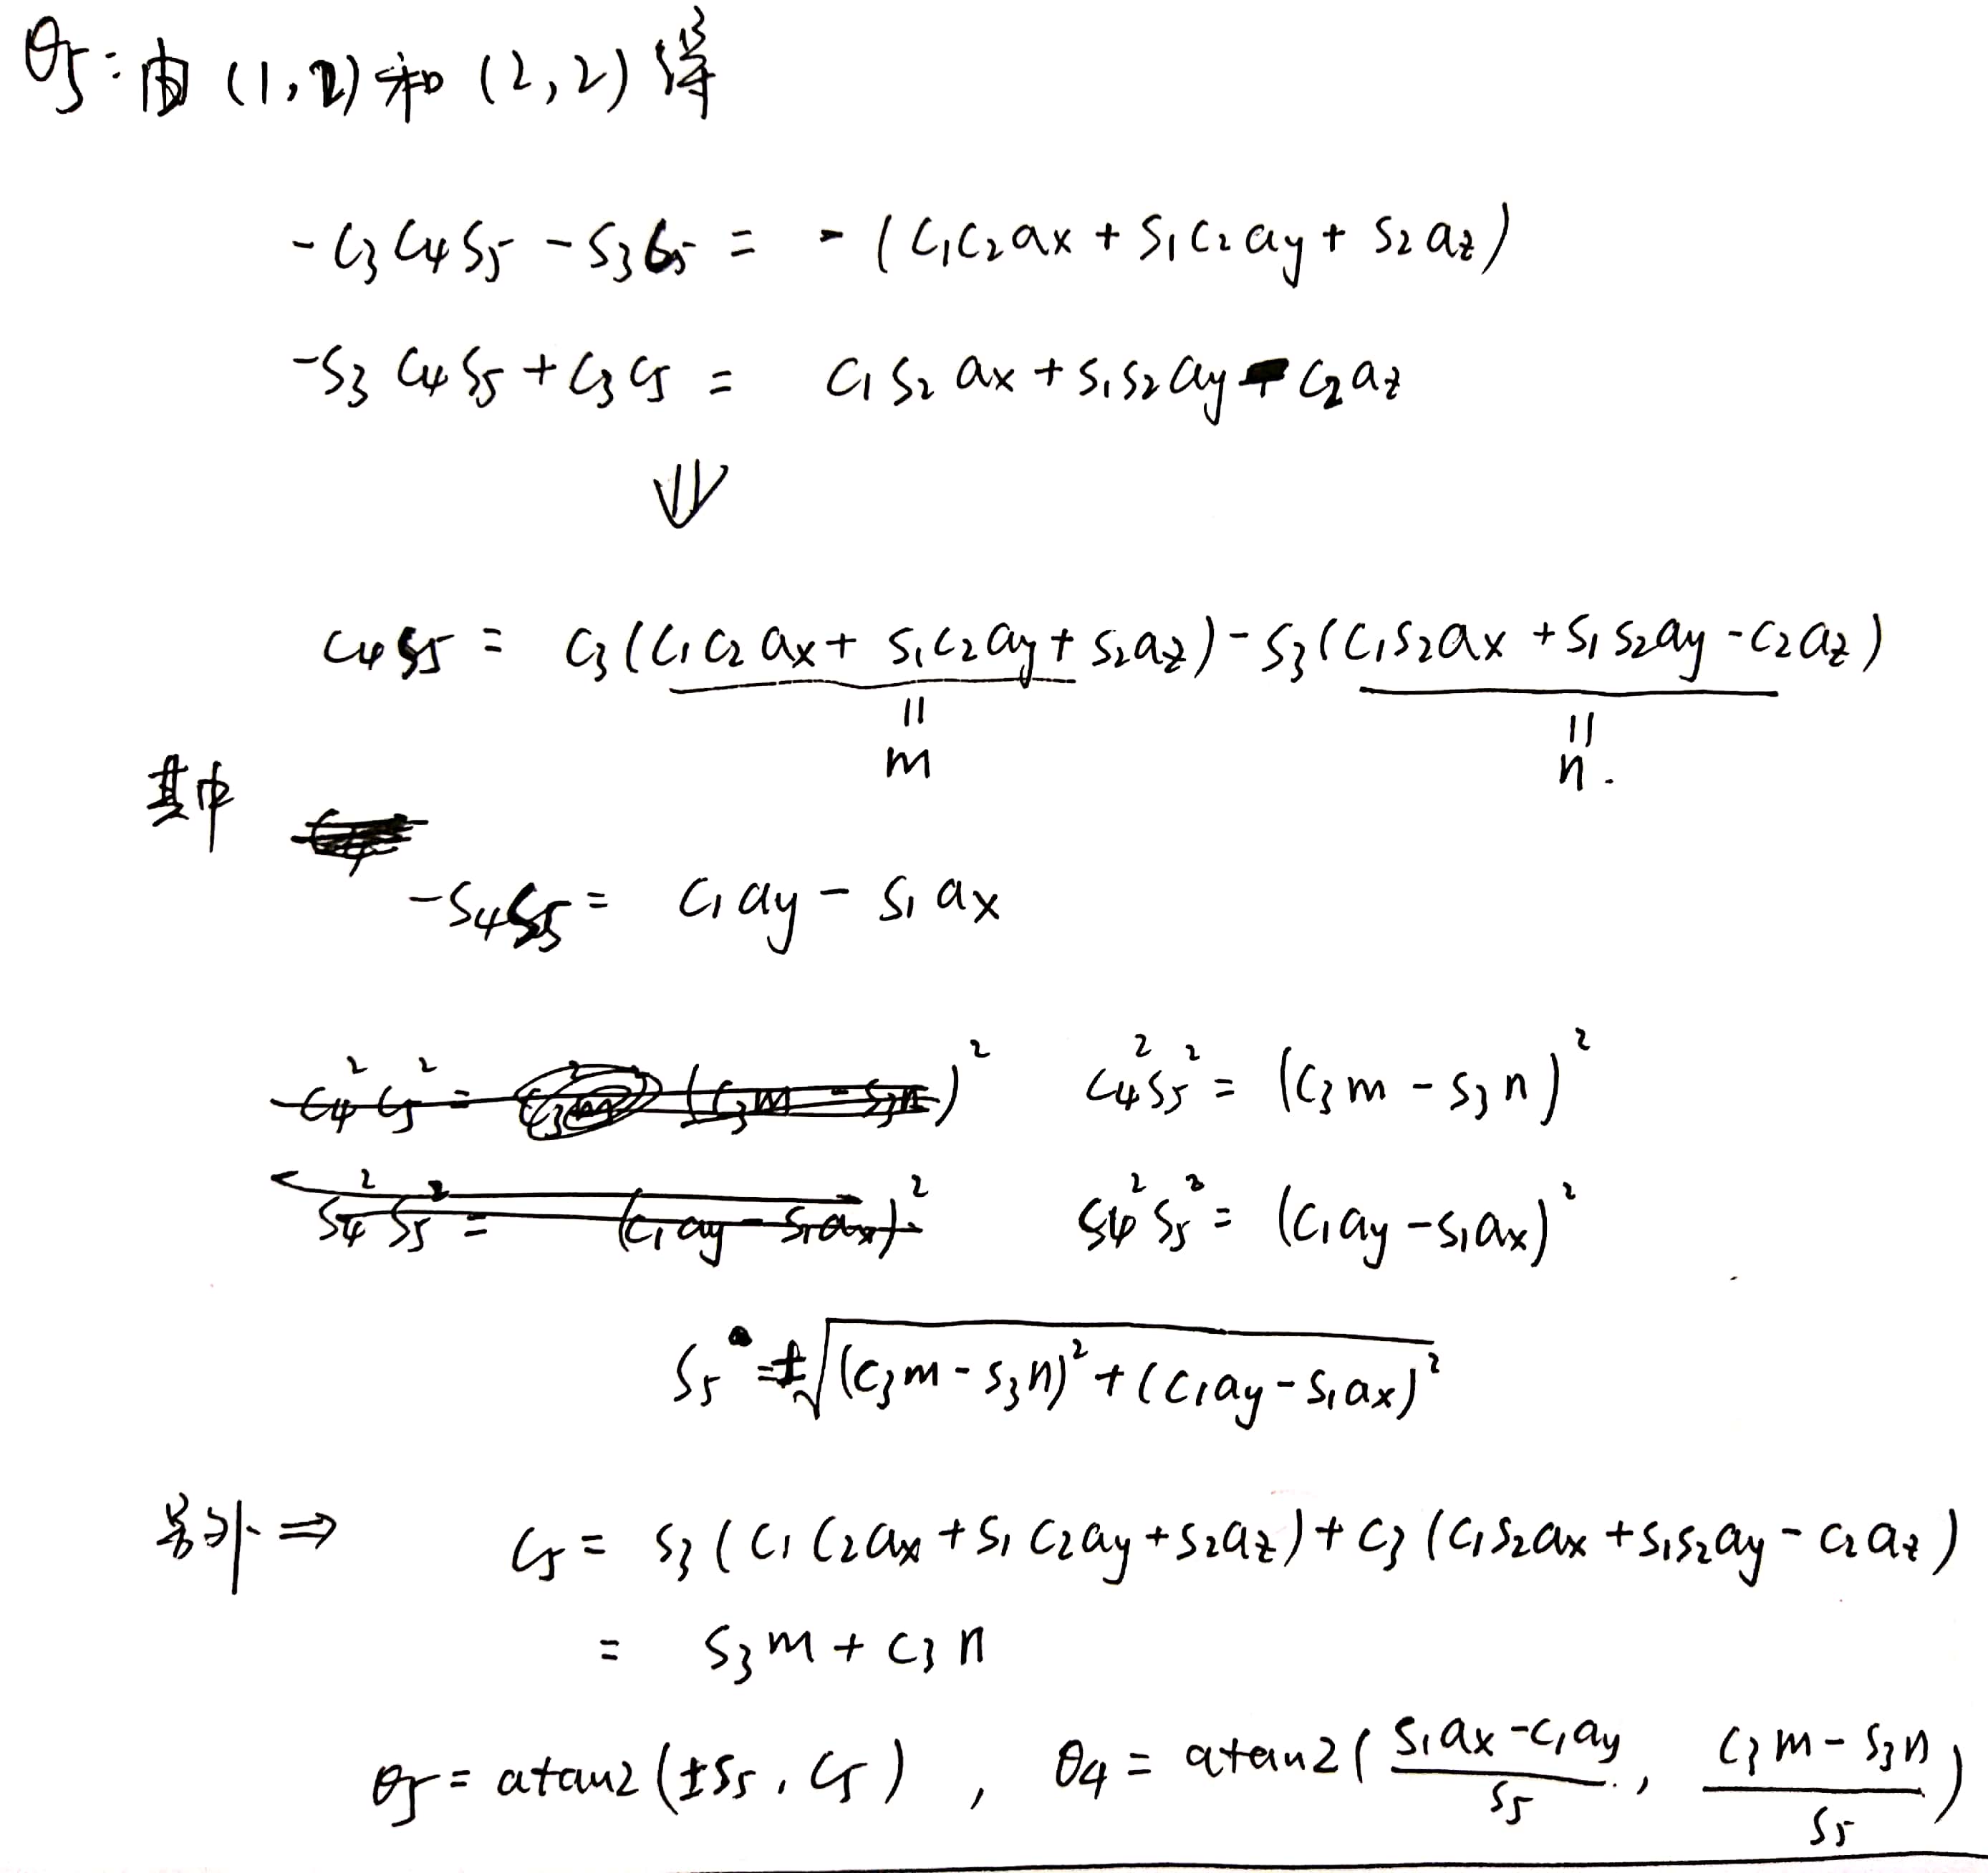 θ5: 由 (1,2) 和 (2,2) 得
-c3c4s5 - s3c5 = -(c1c2ax + s1c2ay + s2az)
-s3c4s5 + c3c5 = c1s2ax + s1s2ay - c2az
⇓
c4s5 = c3(c1c2ax + s1c2ay + s2az) - s3(c1s2ax + s1s2ay - c2az)
= m = n.
其中
-s4s5 = c1ay - s1ax
c4²s5² = (c3m - s3n)²
s4²s5² = (c1ay - s1ax)²
s5 = ±√((c3m - s3n)² + (c1ay - s1ax)²)
另外 ⇒ c5 = s3(c1c2ax + s1c2ay + s2az) + c3(c1s2ax + s1s2ay - c2az)
= s3m + c3n
θ5 = atan2(±s5, c5), θ4 = atan2((s1ax - c1ay)/s5, (c3m - s3n)/s5)